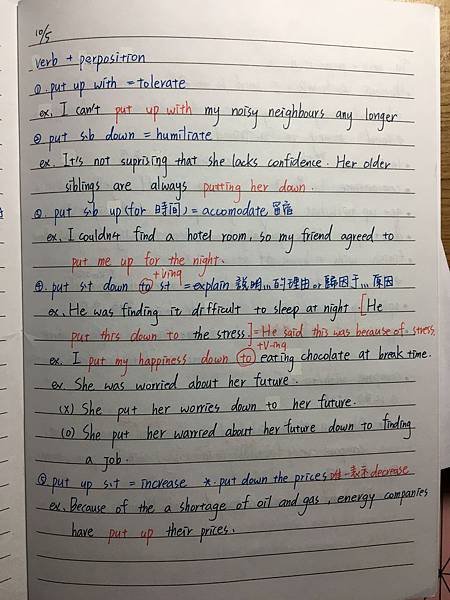 10/5
verb + parposition
①. put up with = tolerate
ex. I can't put up with my noisy neighbours any longer
② put s.b down = humiliate
ex. It's not suprising that she lacks confidence. Her older
siblings are always putting her down.
③. put s.b up (for 時間) = accomodate 留宿
ex. I couldn't find a hotel room, so my friend agreed to
put me up for the night.
+Ving
④. put s.t down to s.t = explain 說明...的理由 or 歸因于... 原因
ex. He was finding it difficult to sleep at night. [He
put this down to the stress.] = He said this was because of stress.
+V-ing
ex. I put my happiness down to eating chocolate at break time.
ex. She was worried about her future.
(X) She put her worries down to her future.
(O) She put her warried about her future down to finding
a job.
⑤ put up s.t = increase *. put down the prices 唯一表示 decrease
ex. Because of the a shortage of oil and gas, energy companies
have put up their prices.